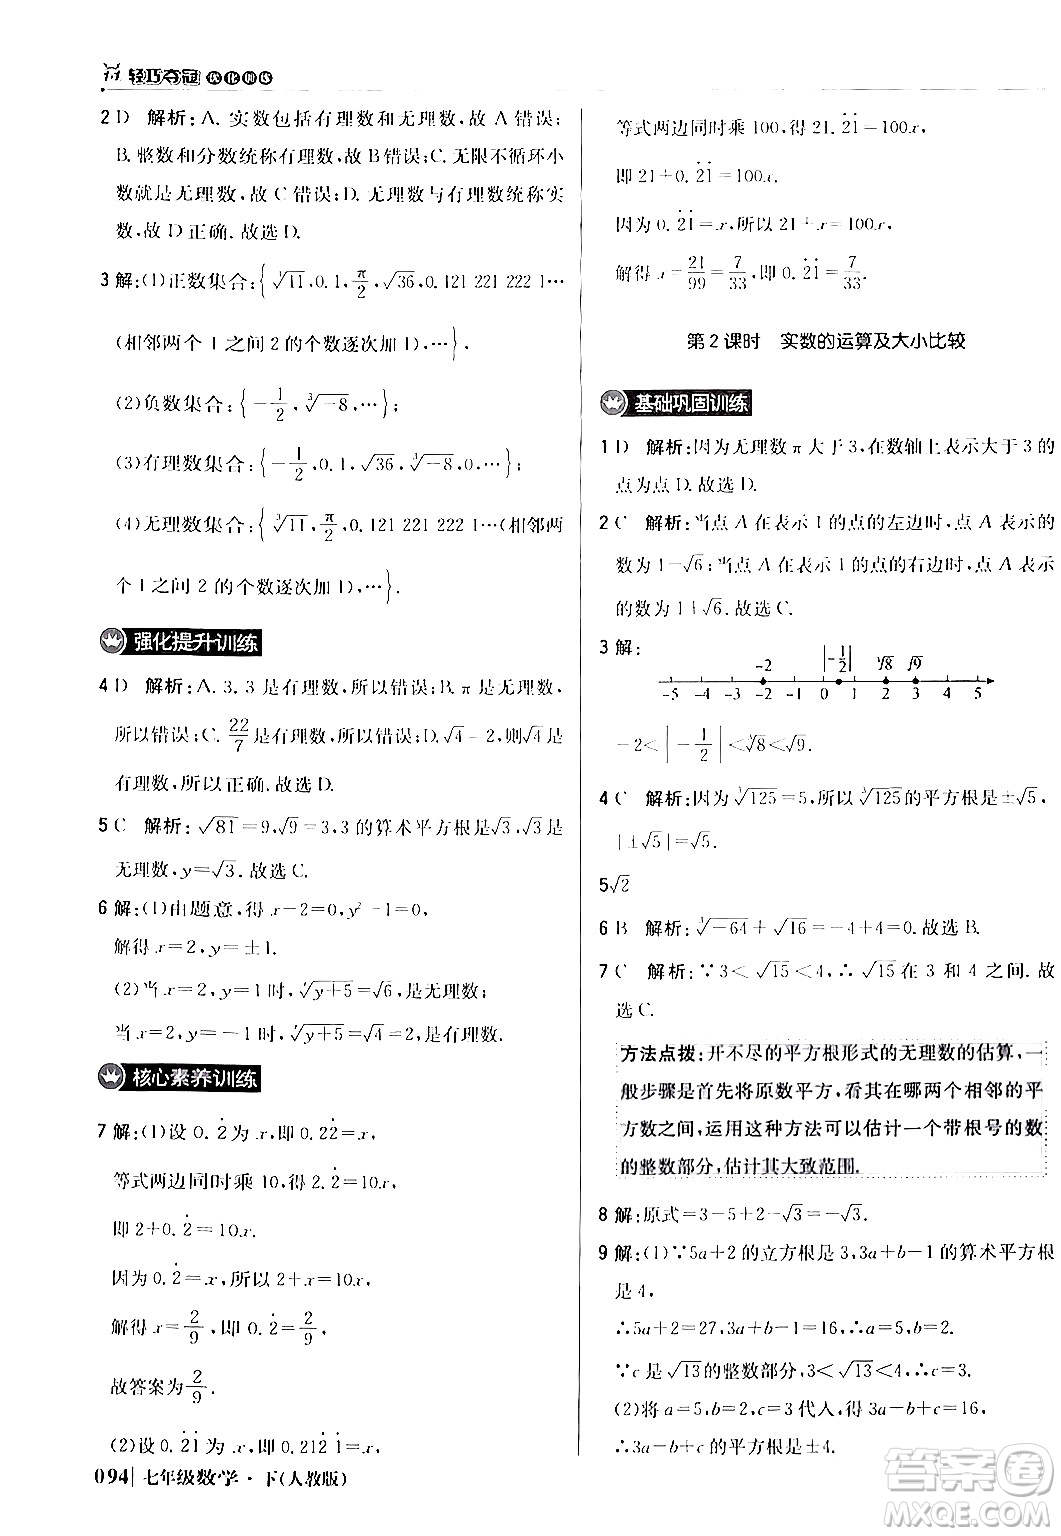 轻巧夺冠 优化训练
2 D 解析:A. 实数包括有理数和无理数，故 A 错误;
B. 整数和分数统称有理数，故 B 错误;C. 无限不循环小
数就是无理数，故 C 错误;D. 无理数与有理数统称实
数，故 D 正确. 故选 D.
3 解:(1)正数集合:{∛11,0.1,π/2,√36,0.121 221 222 1…
(相邻两个 1 之间 2 的个数逐次加 1),…};
(2)负数集合:{-1/2,∛-8,…};
(3)有理数集合:{-1/2,0.1,√36,∛-8,…};
(4)无理数集合:{∛11,π/2,0.121 221 222 1…(相邻两
个 1 之间 2 的个数逐次加 1),…}
强化提升训练
4 D 解析:A. 3.3 是有理数，所以错误;B. π 是无理数，
所以错误;C. 22/7 是有理数，所以错误;D. √4=2,则√4是
有理数，所以正确. 故选 D.
5 C 解析:√81=9,√9=3,3 的算术平方根是√3,√3是
无理数，y=√3. 故选 C.
6 解:(1)由题意，得 x-2=0,y²-1=0,
解得 x=2,y=±1.
(2)当 x=2,y=1 时,√y+5=√6,是无理数;
当 x=2,y=-1 时,√y+5=√4=2,是有理数.
核心素养训练
7 解:(1)设 0.2̇ 为 x,即 0.22̇=x,
等式两边同时乘 10,得 2.2̇=10x,
即 2+0.2̇=10x,
因为 0.2̇=x,所以 2+x=10x,
解得 x=2/9,即 0.2̇=2/9.
故答案为 2/9.
(2)设 0.2̇1̇ 为 x,即 0.212̇1̇=x,
094 七年级数学·下(人教版)
等式两边同时乘 100,得 21.2̇1̇=100x,
即 21+0.2̇1̇=100x.
因为 0.2̇1̇=x,所以 21+x=100x,
解得 x=21/99=7/33,即 0.2̇1̇=7/33.
第 2 课时 实数的运算及大小比较
基础巩固训练
1 D 解析:因为无理数 π 大于 3,在数轴上表示大于 3 的
点为点 D. 故选 D.
2 C 解析:当点 A 在表示 1 的点的左边时,点 A 表示的
数为 1-√6;当点 A 在表示 1 的点的右边时,点 A 表示
的数为 1+√6. 故选 C.
3 解:
-2 |-1/2| ∛8 √9
-5 -4 -3 -2 -1 0 1 2 3 4 5
-2<|-1/2|<∛8<√9.
4 C 解析:因为∛125=5,所以∛125的平方根是±√5,
|±√5|=√5. 故选 C.
5 √2
6 B 解析:∛-64+√16=-4+4=0. 故选 B.
7 C 解析:∵3<√15<4,∴√15在 3 和 4 之间. 故
选 C.
方法点拨:开不尽的平方根形式的无理数的估算,一
般步骤是首先将原数平方,看其在哪两个相邻的平
方数之间,运用这种方法可以估计一个带根号的数
的整数部分,估计其大致范围.
8 解:原式=3-5+2-√3=-√3.
9 解:(1)∵5a+2 的立方根是 3,3a+b-1 的算术平方根
是 4,
∴5a+2=27,3a+b-1=16,∴a=5,b=2.
∵c 是√13的整数部分,3<√13<4,∴c=3.
(2)将 a=5,b=2,c=3 代入,得 3a-b+c=16,
所以 3a-b+c 的平方根是±4.
答案圈
MXQE.COM